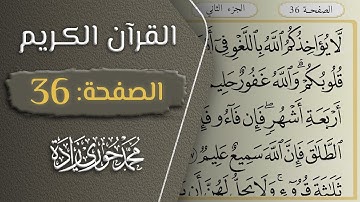 القرآن الكريم
الصفحة: 36
محمد حوري زاده
الصفحـة 36
الجزء الثاني
لَّا يُؤَاخِذُكُمُ ٱللَّهُ بِٱللَّغْوِ فِىٓ
قُلُوبُكُمْ ۗ وَٱللَّهُ غَفُورٌ حَلِيمٌ
أَرْبَعَةِ أَشْهُرٍ ۖ فَإِن فَآءُو فَإِ
ٱلطَّلَٰقَ فَإِنَّ ٱللَّهَ سَمِيعٌ عَلِيمٌ
ثَلَٰثَةَ قُرُوٓءٍ ۚ وَلَا يَحِلُّ لَهُنَّ أَن